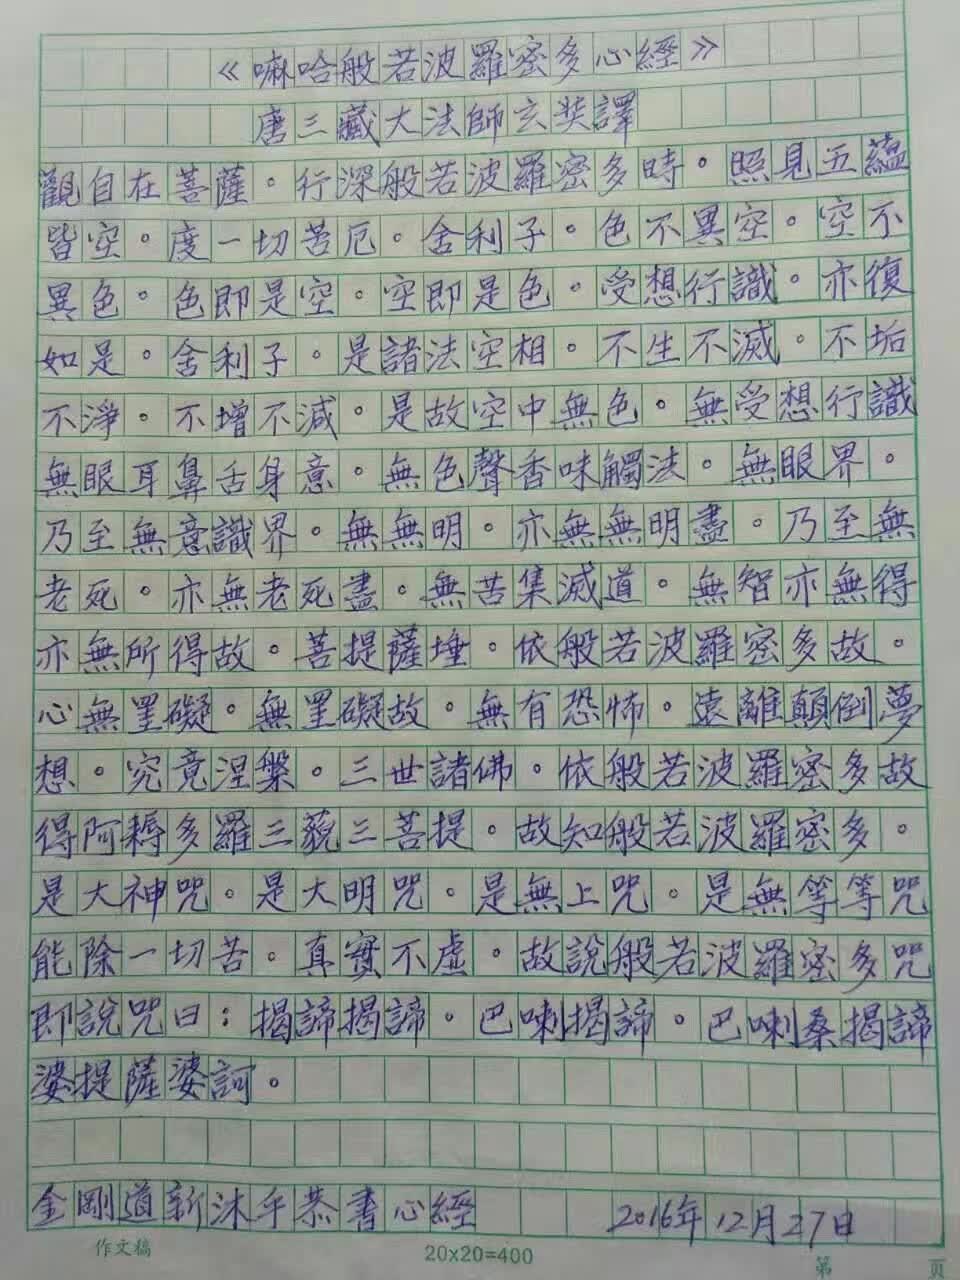 《嘛哈般若波羅密多心經》
唐三藏大法師玄奘譯
觀自在菩薩。行深般若波羅密多時。照見五蘊
皆空。度一切苦厄。舍利子。色不異空。空不
異色。色即是空。空即是色。受想行識。亦復
如是。舍利子。是諸法空相。不生不滅。不垢
不淨。不增不減。是故空中無色。無受想行識
無眼耳鼻舌身意。無色聲香味觸法。無眼界。
乃至無意識界。無無明。亦無無明盡。乃至無
老死。亦無老死盡。無苦集滅道。無智亦無得
亦無所得故。菩提薩埵。依般若波羅密多故。
心無罣礙。無罣礙故。無有恐怖。遠離顛倒夢
想。究竟涅槃。三世諸佛。依般若波羅密多故
得阿耨多羅三藐三菩提。故知般若波羅密多。
是大神咒。是大明咒。是無上咒。是無等等咒
能除一切苦。真實不虛。故說般若波羅密多咒
即說咒曰：揭諦揭諦。巴喇揭諦。巴喇桑揭諦
婆提薩婆訶。
金剛道新沐手恭書心經 2016年12月27日
作文稿 20x20=400 第 頁